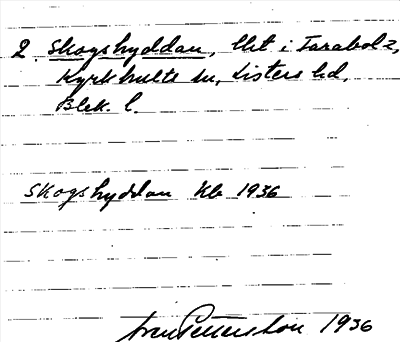 2. Skogshyddan, lht i Farabol 2,
Kyrkhults sn, Listers hd,
Blek. l.
Skogshyddan Kb 1936
Petterson 1936